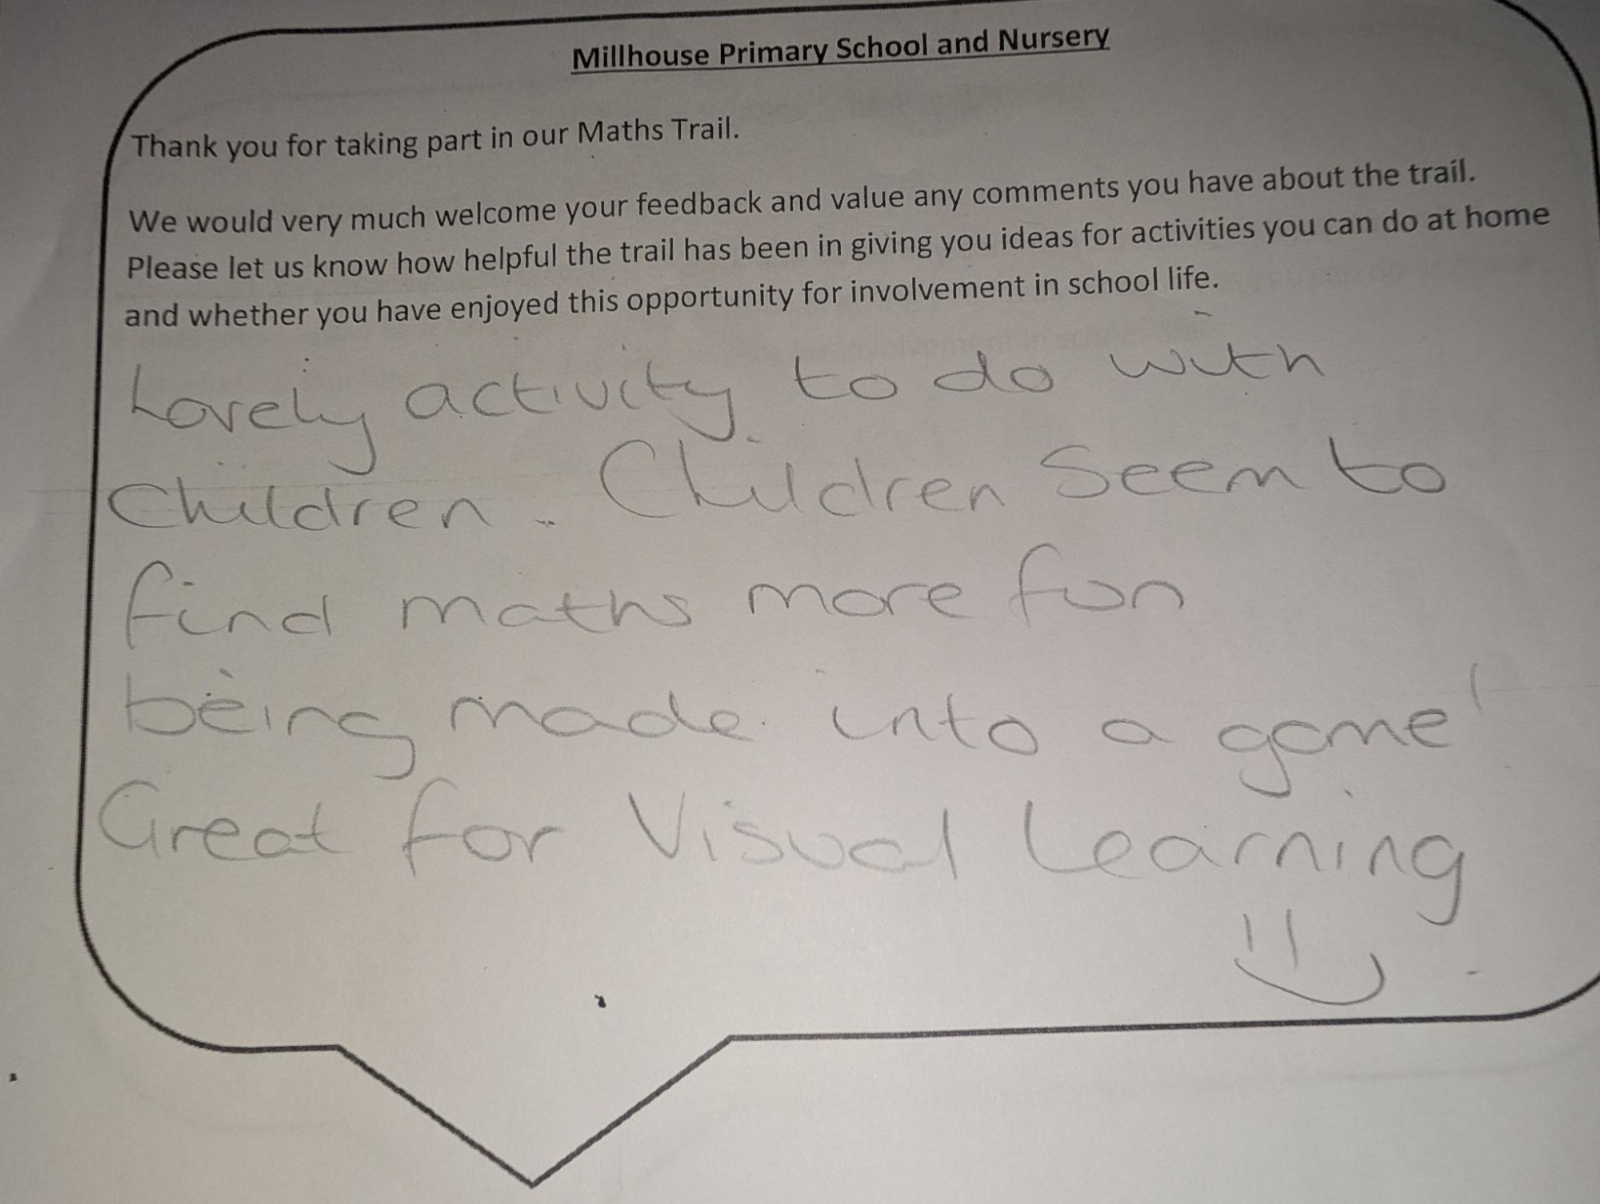 Millhouse Primary School and Nursery
Thank you for taking part in our Maths Trail.
We would very much welcome your feedback and value any comments you have about the trail.
Please let us know how helpful the trail has been in giving you ideas for activities you can do at home
and whether you have enjoyed this opportunity for involvement in school life.
Lovely activity to do with
Children. Children Seem to
find maths more fun
being made into a game!
Great for Visual Learning